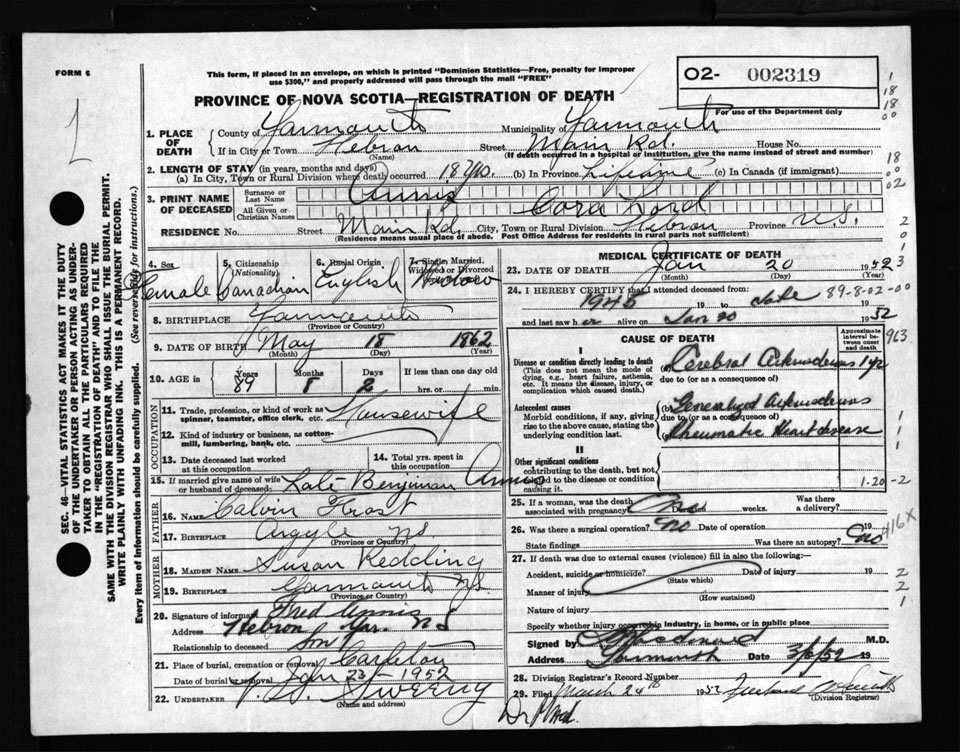 FORM 6
This form, if placed in an envelope, on which is printed "Dominion Statistics—Free, penalty for improper
use $300," and properly addressed will pass through the mail "FREE"
O2- 002319
For use of the Department only
PROVINCE OF NOVA SCOTIA—REGISTRATION OF DEATH
1. PLACE OF DEATH
County of Yarmouth Municipality of Yarmouth
If in City or Town Hebron Street Main Rd. House No.
(Name) (If death occurred in a hospital or institution, give the name instead of street and number)
2. LENGTH OF STAY (in years, months and days)
(a) In City, Town or Rural Division where death occurred 18 yrs. (b) In Province Lifetime (c) In Canada (if immigrant)
3. PRINT NAME OF DECEASED
Surname or Last Name Annis
All Given or Christian Names Cora
RESIDENCE No. Street Main Rd. City, Town or Rural Division Hebron Province N.S.
(Residence means usual place of abode. Post Office Address for residents in rural parts not sufficient)
4. Sex
Female
5. Citizenship (Nationality)
Canadian
6. Racial Origin
English
7. Single, Married, Widowed or Divorced
Widow
8. BIRTHPLACE Yarmouth
(Province or Country)
9. DATE OF BIRTH May 18 1862
(Month) (Day) (Year)
10. AGE in Years Months Days If less than one day old
89 8 2 hrs. or min.
OCCUPATION
11. Trade, profession, or kind of work as spinner, teamster, office clerk, etc. Housewife
12. Kind of industry or business, as cotton-mill, lumbering, bank, etc.
13. Date deceased last worked at this occupation
14. Total yrs. spent in this occupation
15. If married give name of wife or husband of deceased: Late Benjiman Annis
FATHER
16. Name Calvin Frost
17. Birthplace Argyle NS
(Province or Country)
MOTHER
18. MAIDEN NAME Susan Redding
19. BIRTHPLACE Yarmouth NS
(Province or Country)
20. Signature of informant Fred Annis
Address Hebron Yar. NS
Relationship to deceased Son
21. Place of burial, cremation or removal Carleton
Date of burial or removal Jan 23 - 1952
22. UNDERTAKER V. Sweeny
(Name and address)
MEDICAL CERTIFICATE OF DEATH
23. DATE OF DEATH Jan 20 1952
(Month) (Day)
24. I HEREBY CERTIFY that I attended deceased from:
1945 19 to date 89-8-02-00
and last saw her alive on Jan 20 1952
CAUSE OF DEATH
Approximate interval between onset and death
963
I
Disease or condition directly leading to death
(This does not mean the mode of dying, e.g., heart failure, asthenia, etc. It means the disease, injury, or complication which caused death.)
(a) Cerebral 1 yr
due to (or as a consequence of)
Antecedent causes
Morbid conditions, if any, giving rise to the above cause, stating the underlying condition last.
(b) Generalized
due to (or as a consequence of)
Rheumatic Heart disease
II
Other significant conditions
contributing to the death, but not related to the disease or condition causing it.
1-20-2
25. If a woman, was the death associated with pregnancy? No Duration weeks. Was there a delivery?
26. Was there a surgical operation? no Date of operation 19
State findings Was there an autopsy? no
416X
27. If death was due to external causes (violence) fill in also the following:—
Accident, suicide or homicide? Date of injury 19
(State which)
Manner of injury
(How sustained)
Nature of injury
Specify whether injury occurred in industry, in home, or in public place
Signed by Macdonald M.D.
Address Yarmouth Date 3/6/52 19
28. Division Registrar's Record Number
29. Filed March 24th 1952
(Division Registrar)
SEC. 46—VITAL STATISTICS ACT MAKES IT THE DUTY
OF THE UNDERTAKER OR PERSON ACTING AS UNDER-
TAKER TO OBTAIN ALL THE PARTICULARS REQUIRED
IN THE "REGISTRATION OF DEATH" AND TO FILE THE
SAME WITH THE DIVISION REGISTRAR WHO SHALL ISSUE THE BURIAL PERMIT.
WRITE PLAINLY WITH UNFADING INK. THIS IS A PERMANENT RECORD.
Every item of Information should be carefully supplied. (See reverse side for instructions).